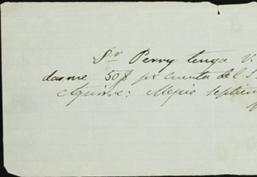 Sr Perry tenga V.
darme 50$ pr cuenta del S.
Aguirre: Mejico Septiem